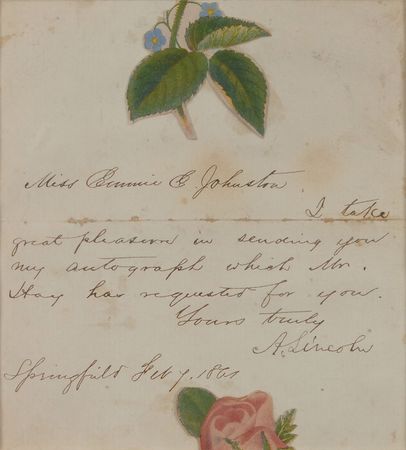 Miss Emmie E. Johnston
I take
great pleasure in sending you
my autograph which Mr.
Hay has requested for you.
Yours truly
A. Lincoln
Springfield Feb 7. 1861